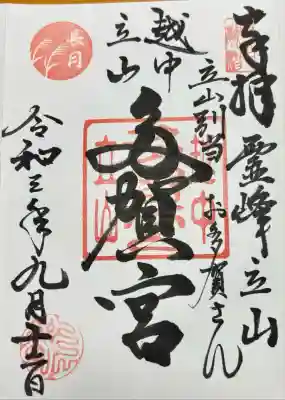 奉拝 霊峰立山
立山別当 お多賀さん
多賀宮
越中
立山
長月
令和三年九月十二日